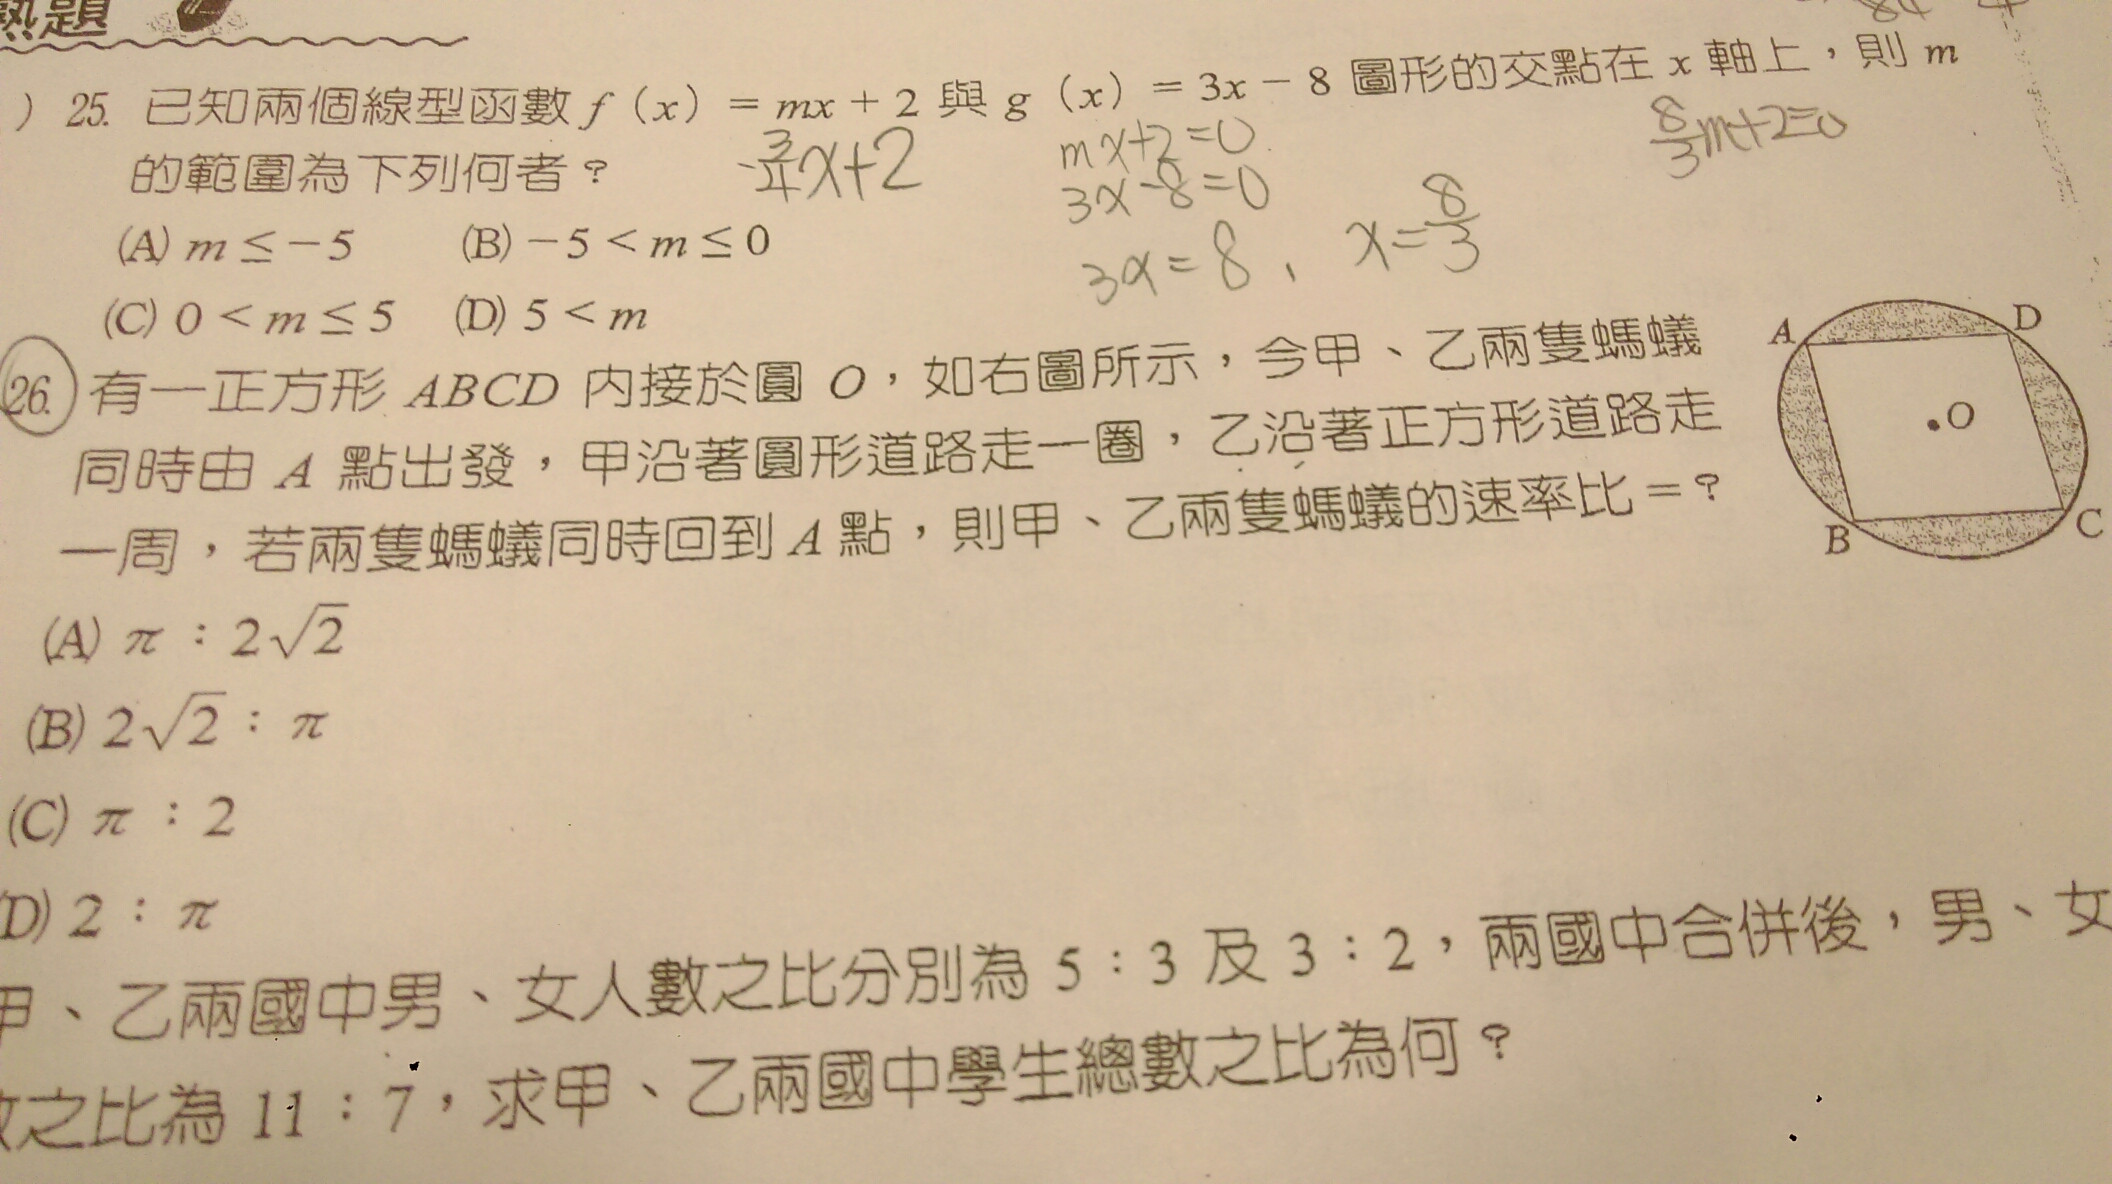 熟題
) 25. 已知兩個線型函數 f（x）= mx + 2 與 g（x）= 3x − 8 圖形的交點在 x 軸上，則 m
的範圍為下列何者？
-3/4x+2
mx+2=0
3x-8=0
3x=8、x=8/3
8/3m+2=0
(A) m ≤ −5 (B) −5 < m ≤ 0
(C) 0 < m ≤ 5 (D) 5 < m
26. 有一正方形 ABCD 內接於圓 O，如右圖所示，今甲、乙兩隻螞蟻
同時由 A 點出發，甲沿著圓形道路走一圈，乙沿著正方形道路走
一周，若兩隻螞蟻同時回到 A 點，則甲、乙兩隻螞蟻的速率比 = ？
A
D
O
B
C
(A) π：2√2
(B) 2√2：π
(C) π：2
(D) 2：π
甲、乙兩國中男、女人數之比分別為 5：3 及 3：2，兩國中合併後，男、女
數之比為 11：7，求甲、乙兩國中學生總數之比為何？